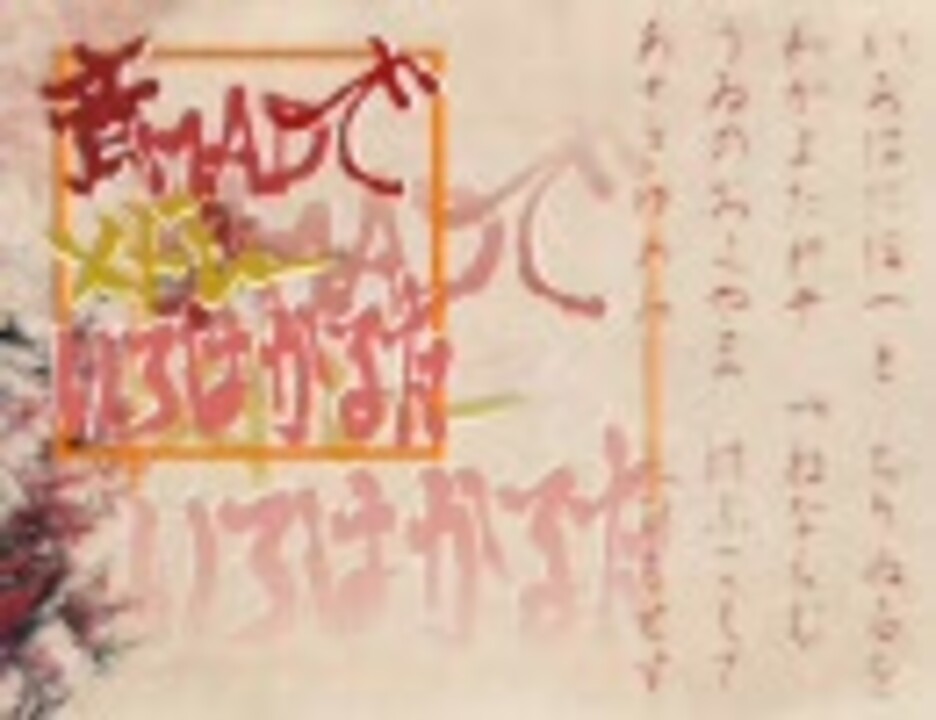 音MADで
いろはかるた
いろはにほへと ちりぬるを
わかよたれそ つねならむ
うゐのおくやま けふこえて
あさきゆめみし ゑひもせす